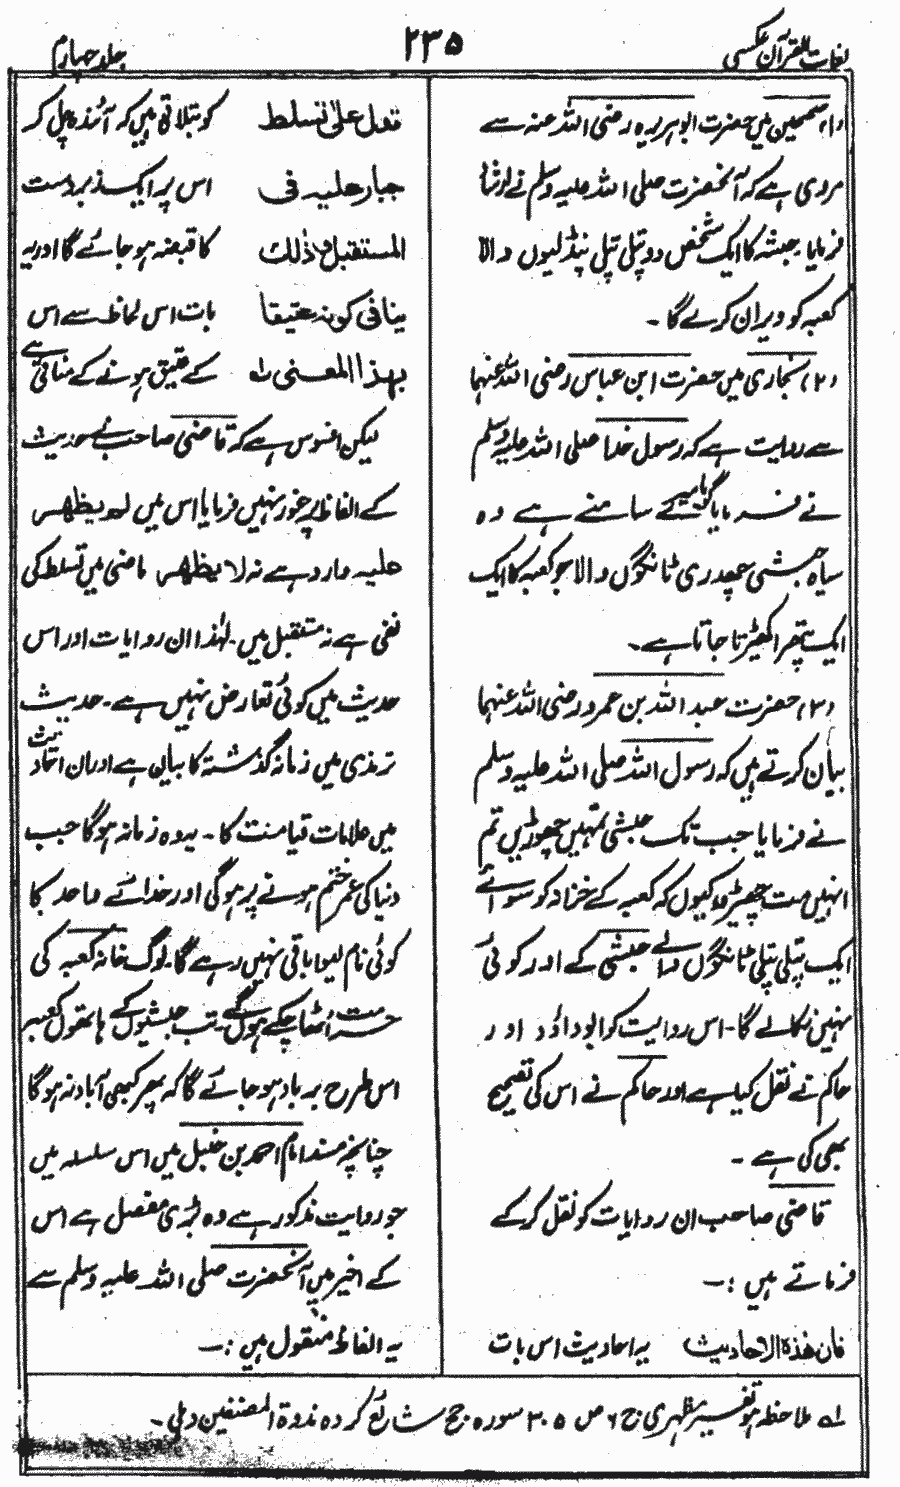 لغات القرآن عکسی
۲۳۵
جلد چہارم
(۱) صحیحین میں حضرت ابوہریرہ رضی اللہ عنہ سے
مروی ہے کہ آنحضرت صلی اللہ علیہ وسلم نے ارشاد
فرمایا حبشہ کا ایک شخص دو پتلی پتلی پنڈلیوں والا
کعبہ کو ویران کرے گا۔
(۲) بخاری میں حضرت ابن عباس رضی اللہ عنہما
سے روایت ہے کہ رسول خدا صلی اللہ علیہ وسلم
نے فرمایا گویا میرے سامنے ہے وہ
سیاہ حبشی چھدری ٹانگوں والا جو کعبہ کا ایک
ایک پتھر اکھیڑتا جاتا ہے۔
(۳) حضرت عبد اللہ بن عمرو رضی اللہ عنہما
بیان کرتے ہیں کہ رسول اللہ صلی اللہ علیہ وسلم
نے فرمایا جب تک حبشی تمہیں چھوڑیں تم
انہیں مت چھیڑو کیوں کہ کعبہ کے خزانہ کو سوائے
ایک پتلی پتلی ٹانگوں والے حبشی کے اور کوئی
نہیں نکالے گا۔ اس روایت کو ابوداؤد اور
حاکم نے نقل کیا ہے اور حاکم نے اس کی تصحیح
بھی کی ہے۔
قاضی صاحب ان روایات کو نقل کرکے
فرماتے ہیں :۔
فان ھذہ الاحادیث یہ احادیث اس بات
تدل علیٰ تسلط کو بتلاتی ہیں کہ آئندہ چل کر
جبار علیہ فی اس پر ایک زبردست
المستقبل وذٰلک کا قبضہ ہو جائے گا اور یہ
ینافی کونہ عتیقا بات اس لحاظ سے اس
بھذا المعنی لہ کے عتیق ہونے کے منافی ہے
لیکن افسوس ہے کہ قاضی صاحب نے حدیث
کے الفاظ پر غور نہیں فرمایا اس میں لم یظھر
علیہ وارد ہے نہ لا یظھر، ماضی میں تسلط کی
نفی ہے نہ مستقبل میں۔ لہٰذا ان روایات اور اس
حدیث میں کوئی تعارض نہیں ہے۔ حدیث
ترمذی میں زمانہ گذشتہ کا بیان ہے اور ان احادیث
میں علامات قیامت کا۔ یہ وہ زمانہ ہوگا جب
دنیا کی عمر ختم ہونے پر ہوگی اور خدائے واحد کا
کوئی نام لیوا باقی نہیں رہے گا۔ لوگ خانہ کعبہ کی
حرمت اُٹھا چکے ہوں گے۔ تب حبشیوں کے ہاتھوں کعبہ
اس طرح برباد ہوجائے گا کہ پھر کبھی آباد نہ ہوگا
چنانچہ مسند امام احمد بن حنبل میں اس سلسلہ میں
جو روایت مذکور ہے وہ بڑی مفصل ہے اس
کے اخیر میں آنحضرت صلی اللہ علیہ وسلم سے
یہ الفاظ منقول ہیں :۔
لہ ملاحظہ ہو تفسیر مظہری ج ۶ ص ۳۰۵ سورہ حج شائع کردہ ندوۃ المصنفین دہلی۔